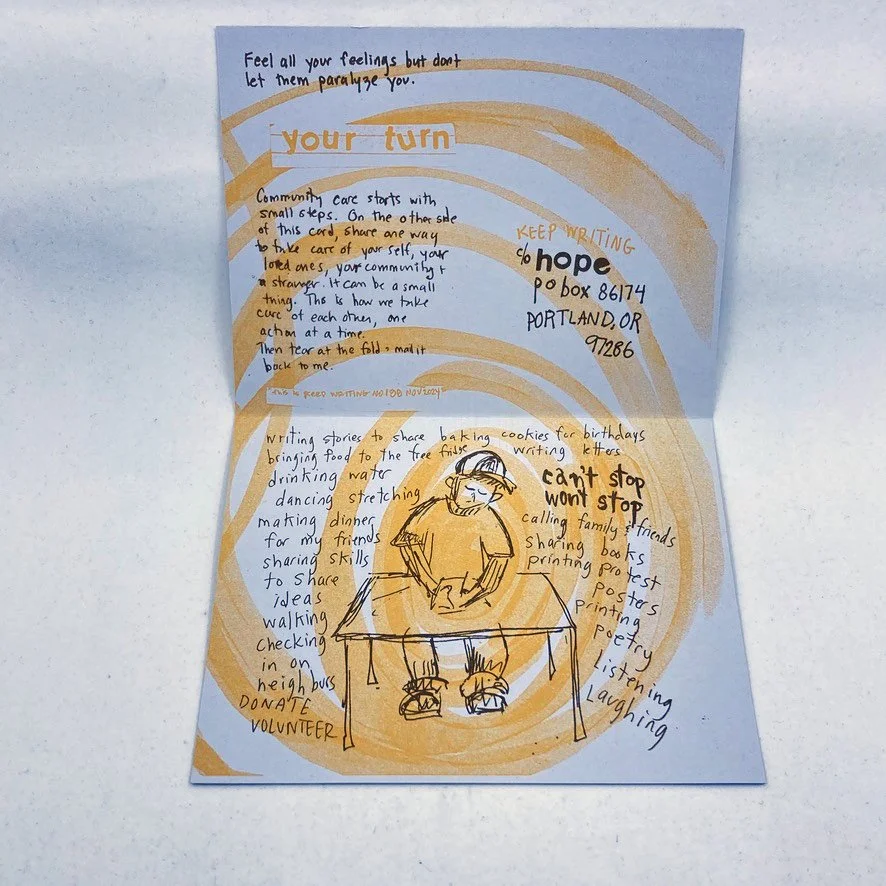 Feel all your feelings but dont
let them paralyze you.
your turn
Community care starts with
small steps. On the other side
of this card, share one way
to take care of your self, your
loved ones, your community +
a stranger. It can be a small
thing. This is how we take
care of each other, one
action at a time.
Then tear at the fold + mail it
back to me.
KEEP WRITING
c/o hope
po box 86174
PORTLAND, OR
97286
"This is KEEP WRITING NO 188 NOV 2024"
writing stories to share baking cookies for birthdays
bringing food to the free fridge writing letters
drinking water
dancing stretching
making dinner
for my friends
sharing skills
to share
ideas
walking
checking
in on
neighburs
DONATE
VOLUNTEER
can't stop
won't stop
calling family & friends
sharing books
printing protest
posters
printing
poetry
listening
Laughing